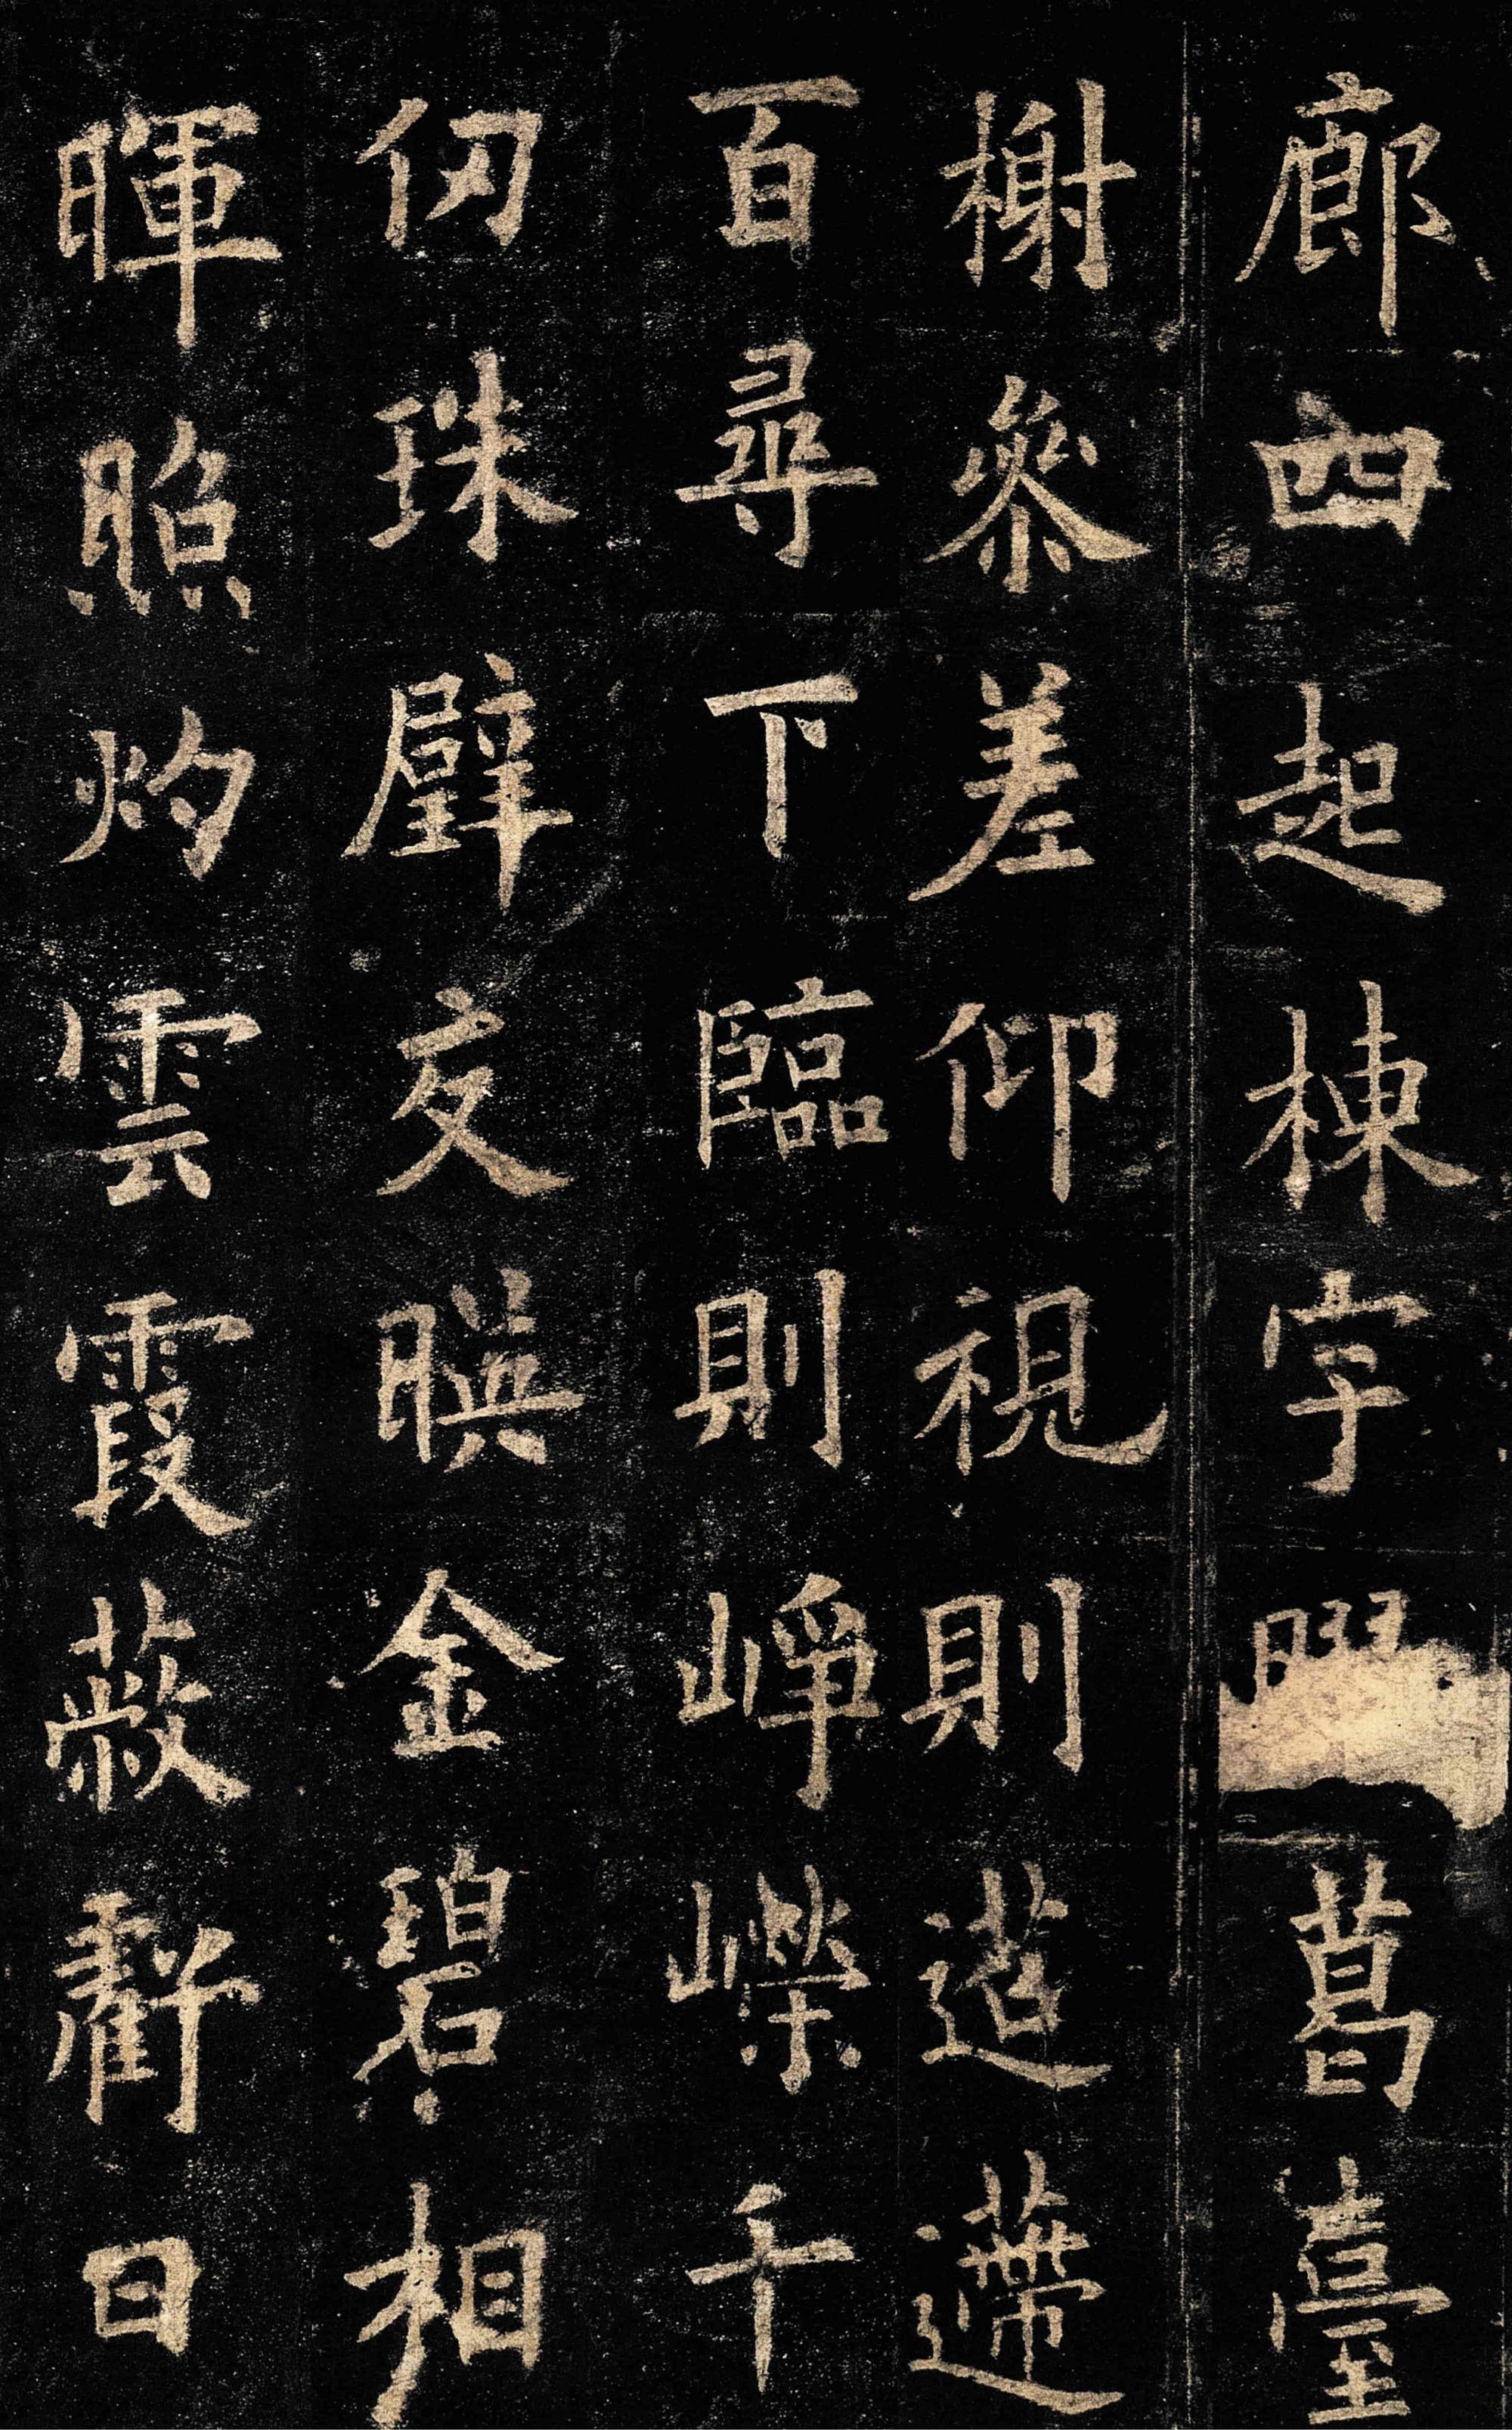 廊四起棟宇葛臺
榭參差仰視則迢遰
百尋下臨則崢嶸千
仞珠璧交暎金碧相
暉照灼雲霞蔽虧日